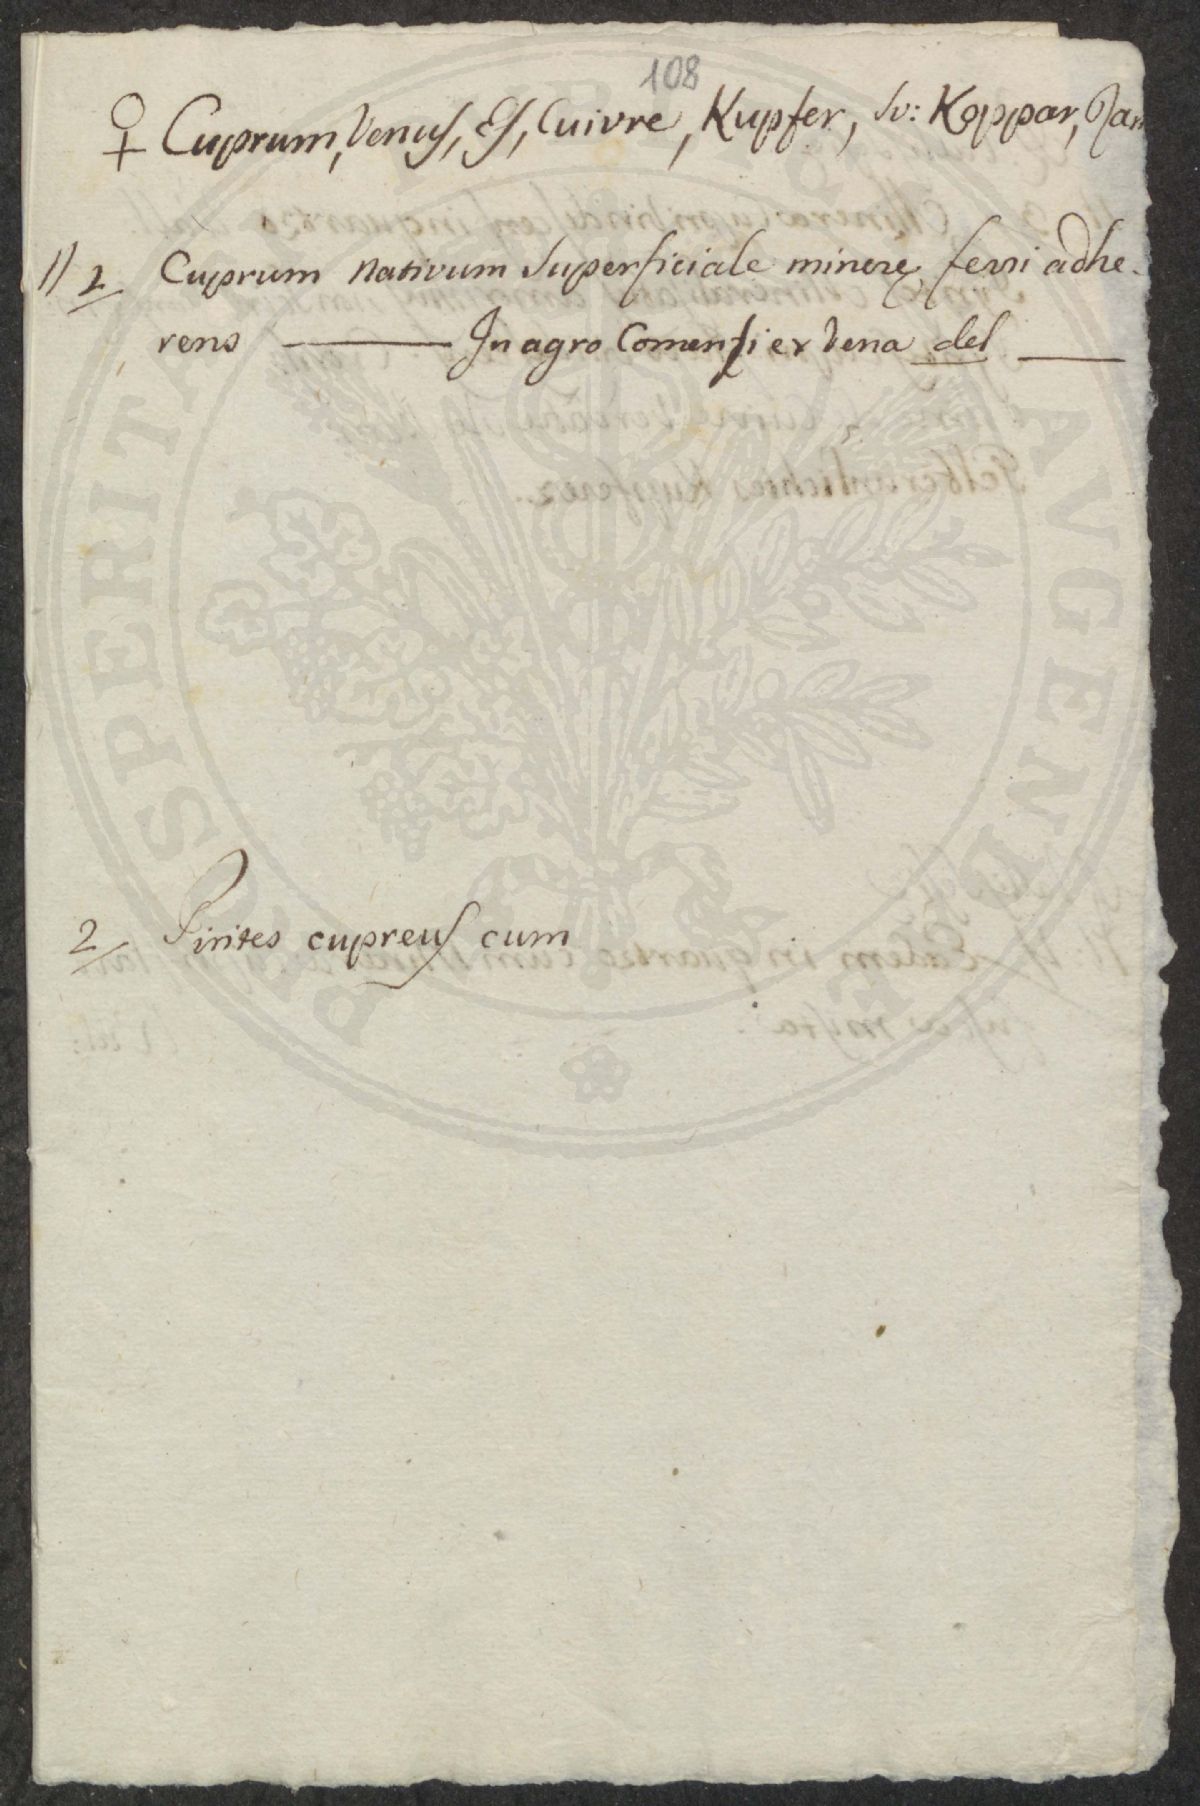 108
♀ Cuprum, Venus, Es, Cuivre, Kupfer, Sv: Koppar,
1) 1 Cuprum nativum superficiale minerę ferri adhe-
rens — In agro Comensi ex vena del —
2 Pirites cupreus cum
PROSPERITATI PUBLICAE AVGENDAE